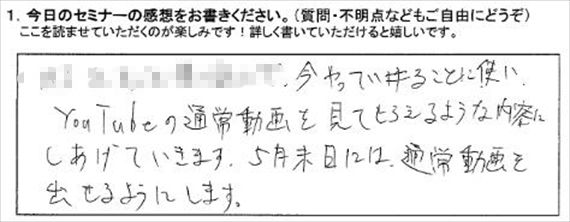 1. 今日のセミナーの感想をお書きください。（質問・不明点などもご自由にどうぞ）
ここを読ませていただくのが楽しみです！詳しく書いていただけると嬉しいです。
今やっていることに使い、
YouTubeの通常動画を見てもらえるような内容に
しあげていきます。5月末日には、通常動画を
出せるようにします。